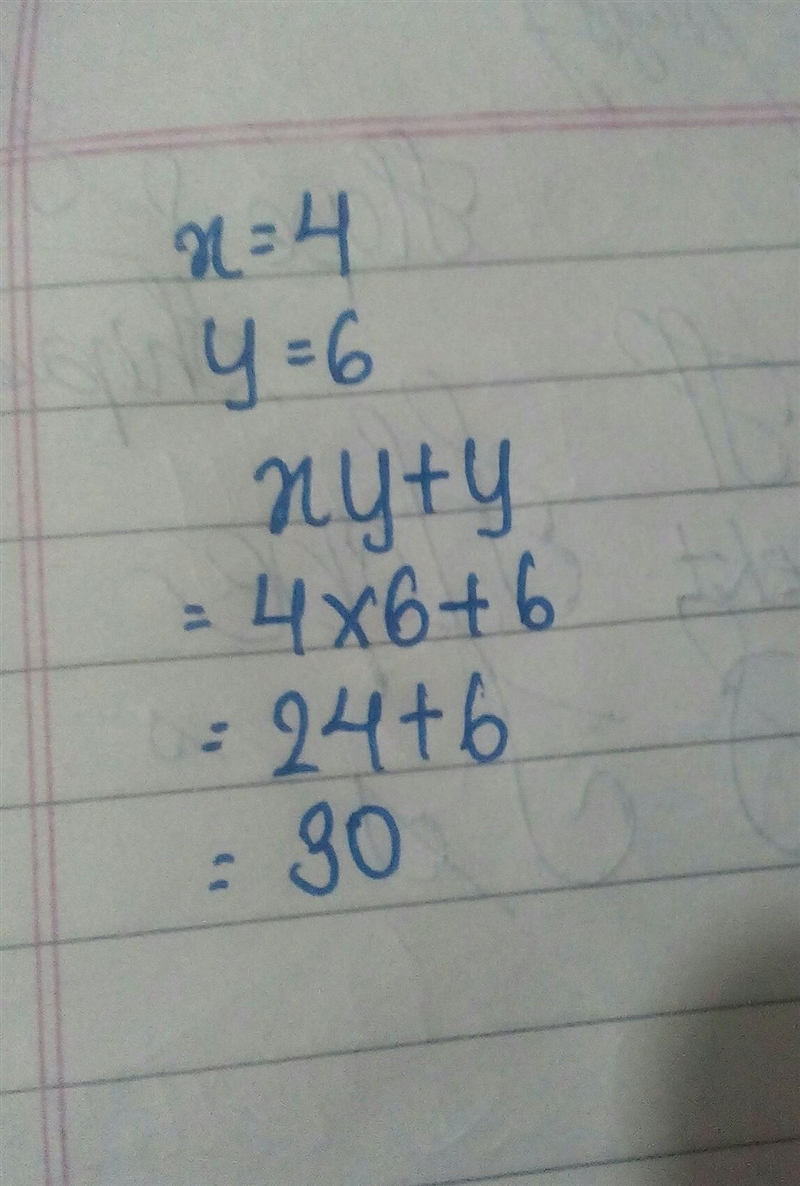 x=4
y=6
xy+y
= 4×6+6
= 24+6
= 30